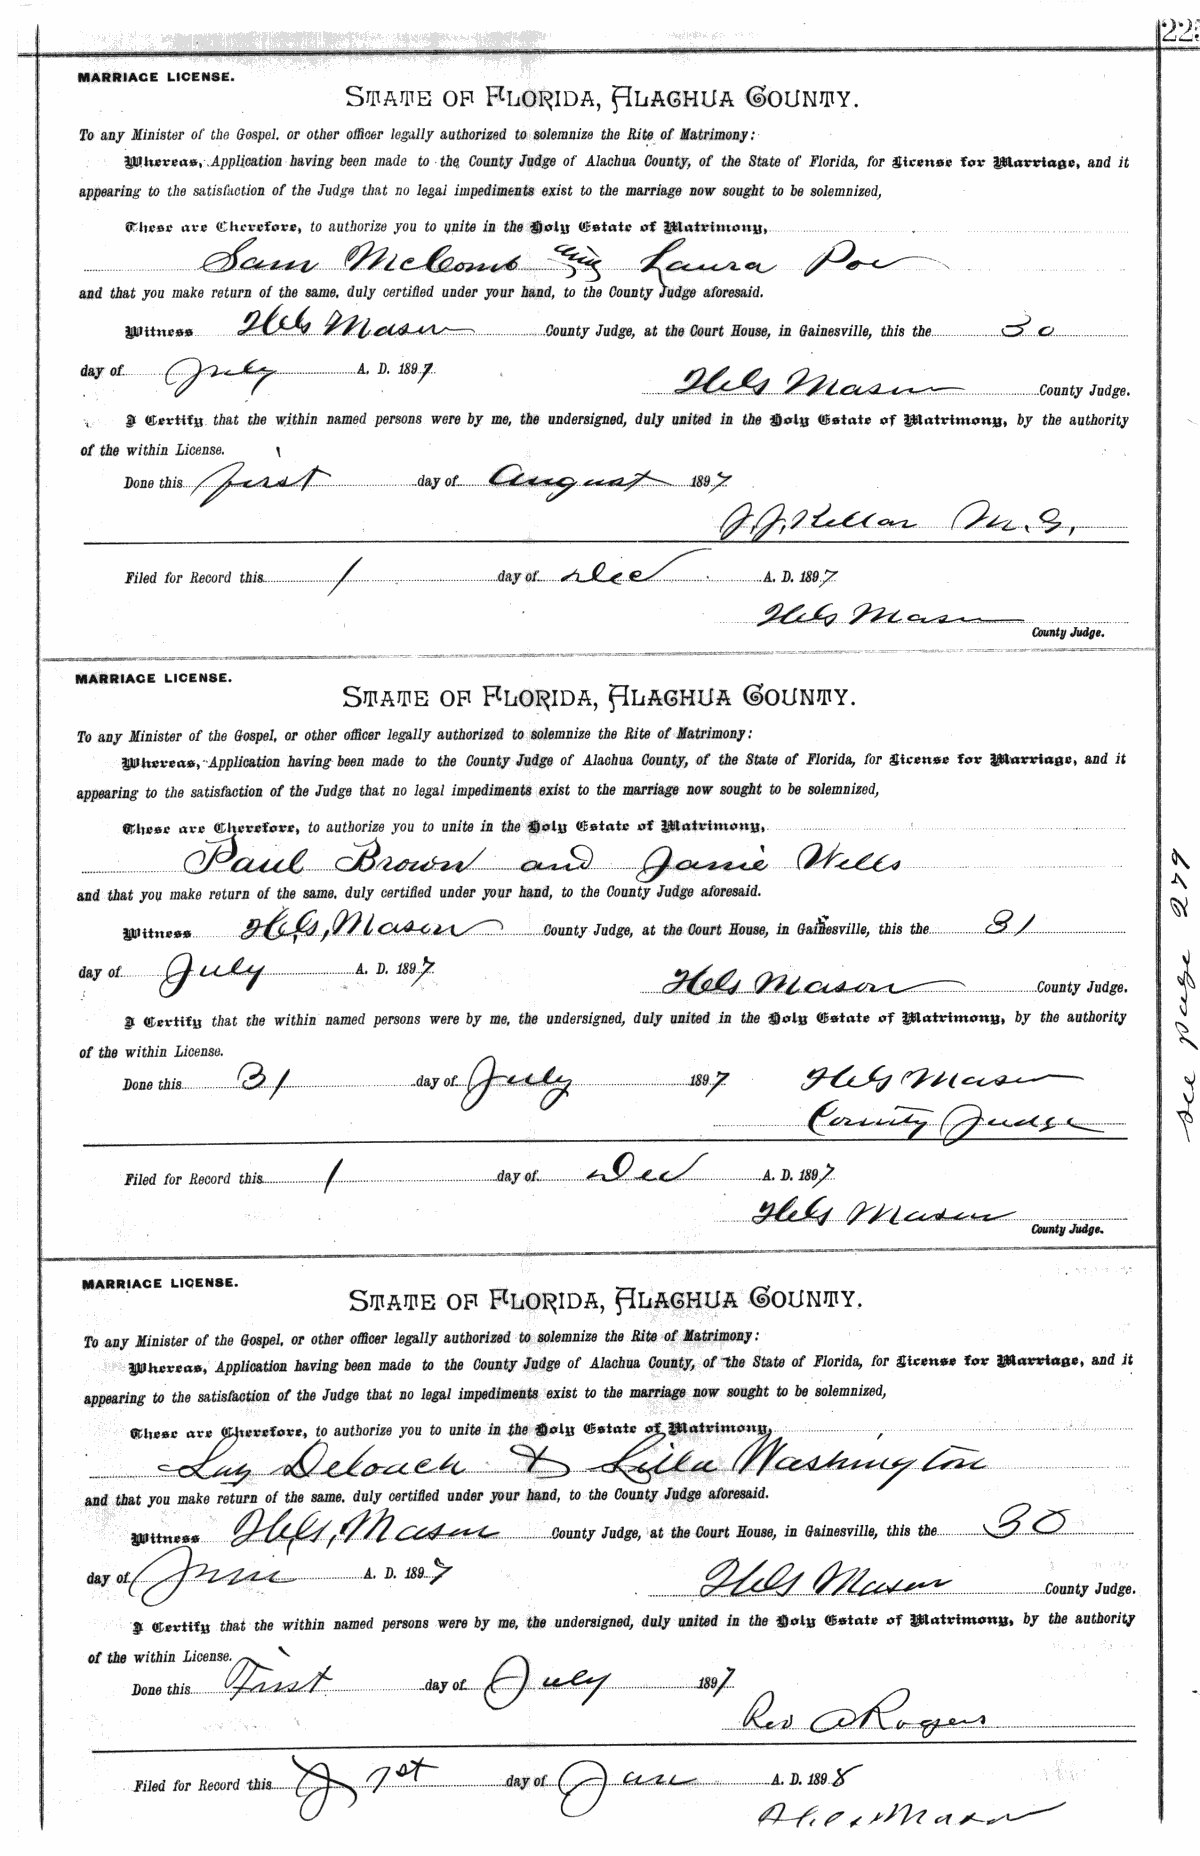 225
MARRIAGE LICENSE.
STATE OF FLORIDA, ALACHUA COUNTY.
To any Minister of the Gospel, or other officer legally authorized to solemnize the Rite of Matrimony:
Whereas, Application having been made to the County Judge of Alachua County, of the State of Florida, for License for Marriage, and it
appearing to the satisfaction of the Judge that no legal impediments exist to the marriage now sought to be solemnized,
These are Therefore, to authorize you to unite in the Holy Estate of Matrimony,
Sam McComb and Laura Poe
and that you make return of the same, duly certified under your hand, to the County Judge aforesaid.
Witness H.G. Mason County Judge, at the Court House, in Gainesville, this the 30
day of July A. D. 1897. H.G. Mason County Judge.
I Certify that the within named persons were by me, the undersigned, duly united in the Holy Estate of Matrimony, by the authority
of the within License.
Done this first day of August 1897
J.J. Kellar M.G.
Filed for Record this 1 day of Dec A. D. 1897
H.G. Mason
County Judge.
MARRIAGE LICENSE.
STATE OF FLORIDA, ALACHUA COUNTY.
To any Minister of the Gospel, or other officer legally authorized to solemnize the Rite of Matrimony:
Whereas, Application having been made to the County Judge of Alachua County, of the State of Florida, for License for Marriage, and it
appearing to the satisfaction of the Judge that no legal impediments exist to the marriage now sought to be solemnized,
These are Therefore, to authorize you to unite in the Holy Estate of Matrimony,
Paul Brown and Janie Wells
and that you make return of the same, duly certified under your hand, to the County Judge aforesaid.
Witness H.G. Mason County Judge, at the Court House, in Gainesville, this the 31
day of July A. D. 1897 H.G. Mason County Judge.
I Certify that the within named persons were by me, the undersigned, duly united in the Holy Estate of Matrimony, by the authority
of the within License.
Done this 31 day of July 1897 H.G. Mason
County Judge
Filed for Record this 1 day of Dec A. D. 1897
H.G. Mason
County Judge.
see page 279
MARRIAGE LICENSE.
STATE OF FLORIDA, ALACHUA COUNTY.
To any Minister of the Gospel, or other officer legally authorized to solemnize the Rite of Matrimony:
Whereas, Application having been made to the County Judge of Alachua County, of the State of Florida, for License for Marriage, and it
appearing to the satisfaction of the Judge that no legal impediments exist to the marriage now sought to be solemnized,
These are Therefore, to authorize you to unite in the Holy Estate of Matrimony,
Deloach & Lilla Washington
and that you make return of the same, duly certified under your hand, to the County Judge aforesaid.
Witness H.G. Mason County Judge, at the Court House, in Gainesville, this the 30
day of June A. D. 1897 H.G. Mason County Judge.
I Certify that the within named persons were by me, the undersigned, duly united in the Holy Estate of Matrimony, by the authority
of the within License.
Done this First day of July 1897
Rev A Rogers
Filed for Record this 1st day of Jan A. D. 1898
H.G. Mason